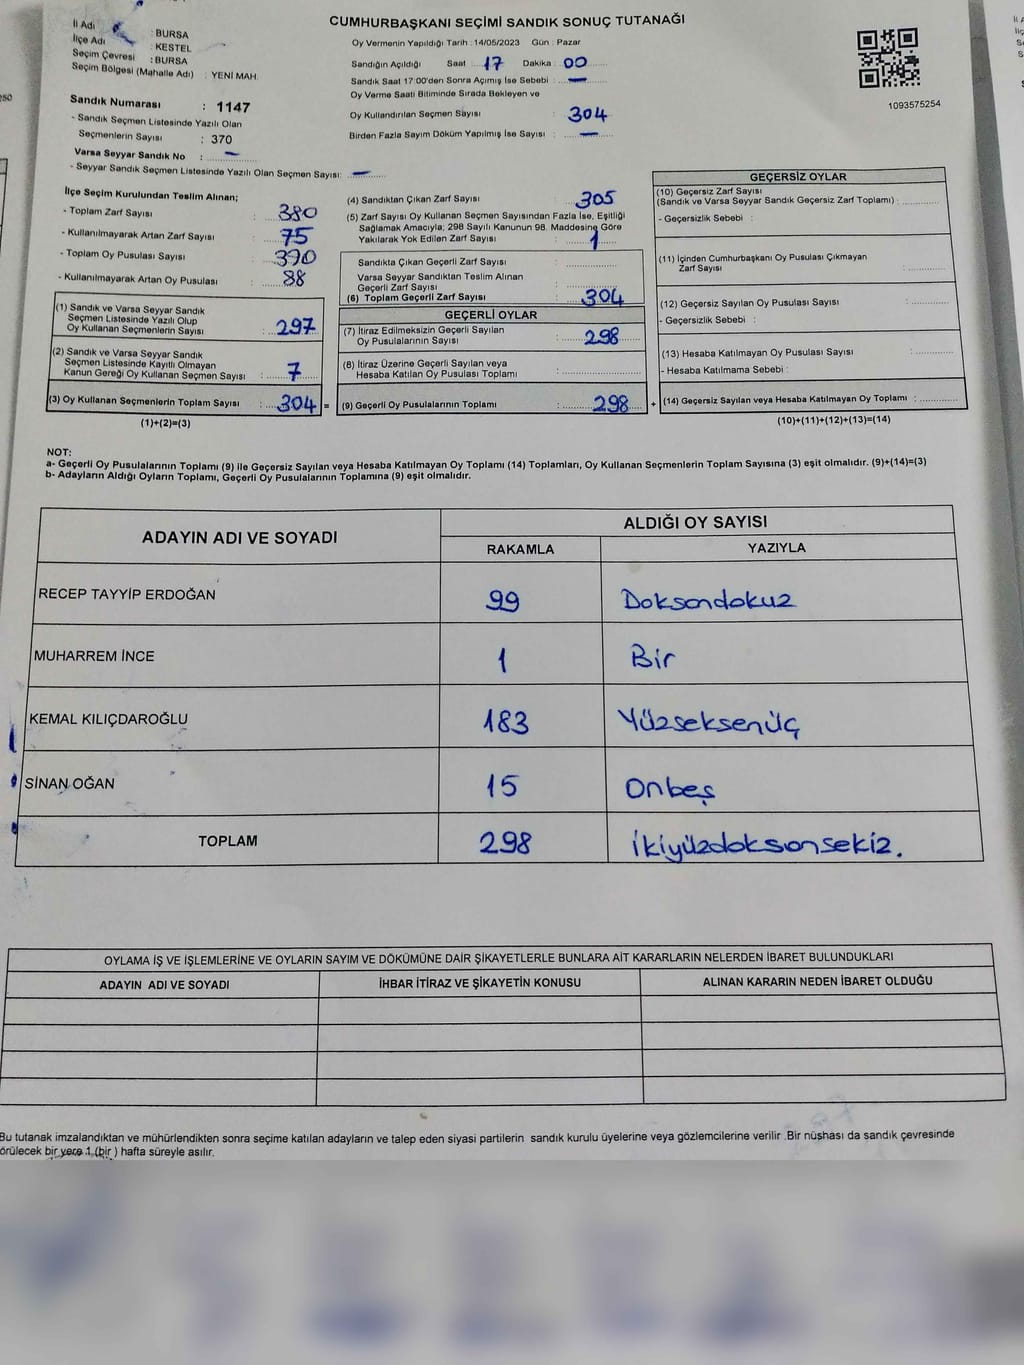 CUMHURBAŞKANI SEÇİMİ SANDIK SONUÇ TUTANAĞI
İl Adı : BURSA
İlçe Adı : KESTEL
Seçim Çevresi : BURSA
Seçim Bölgesi (Mahalle Adı) : YENİ MAH.
Oy Vermenin Yapıldığı Tarih : 14/05/2023 Gün : Pazar
Sandığın Açıldığı Saat 17 Dakika : 00
Sandık Saat 17:00'den Sonra Açımış İse Sebebi : —
Oy Verme Saati Bitiminde Sırada Bekleyen ve
Oy Kullandırılan Seçmen Sayısı : 304
Birden Fazla Sayım Döküm Yapılmış İse Sayısı : —
1093575254
Sandık Numarası : 1147
- Sandık Seçmen Listesinde Yazılı Olan
Seçmenlerin Sayısı : 370
Varsa Seyyar Sandık No : —
- Seyyar Sandık Seçmen Listesinde Yazılı Olan Seçmen Sayısı: —
İlçe Seçim Kurulundan Teslim Alınan;
- Toplam Zarf Sayısı : 380
- Kullanılmayarak Artan Zarf Sayısı : 75
- Toplam Oy Pusulası Sayısı : 390
- Kullanılmayarak Artan Oy Pusulası : 88
(1) Sandık ve Varsa Seyyar Sandık
Seçmen Listesinde Yazılı Olup
Oy Kullanan Seçmenlerin Sayısı : 297
(2) Sandık ve Varsa Seyyar Sandık
Seçmen Listesinde Kayıtlı Olmayan
Kanun Gereği Oy Kullanan Seçmen Sayısı : 7
(3) Oy Kullanan Seçmenlerin Toplam Sayısı : 304 =
(1)+(2)=(3)
(4) Sandıktan Çıkan Zarf Sayısı : 305
(5) Zarf Sayısı Oy Kullanan Seçmen Sayısından Fazla İse, Eşitliği
Sağlamak Amacıyla; 298 Sayılı Kanunun 98. Maddesine Göre
Yakılarak Yok Edilen Zarf Sayısı : 1
Sandıkta Çıkan Geçerli Zarf Sayısı :
Varsa Seyyar Sandıktan Teslim Alınan
Geçerli Zarf Sayısı :
(6) Toplam Geçerli Zarf Sayısı : 304
GEÇERLİ OYLAR
(7) İtiraz Edilmeksizin Geçerli Sayılan
Oy Pusulalarının Sayısı : 298
(8) İtiraz Üzerine Geçerli Sayılan veya
Hesaba Katılan Oy Pusulası Toplamı :
(9) Geçerli Oy Pusulalarının Toplamı : 298 +
GEÇERSİZ OYLAR
(10) Geçersiz Zarf Sayısı
(Sandık ve Varsa Seyyar Sandık Geçersiz Zarf Toplamı) :
- Geçersizlik Sebebi :
(11) İçinden Cumhurbaşkanı Oy Pusulası Çıkmayan
Zarf Sayısı :
(12) Geçersiz Sayılan Oy Pusulası Sayısı :
- Geçersizlik Sebebi :
(13) Hesaba Katılmayan Oy Pusulası Sayısı :
- Hesaba Katılmama Sebebi :
(14) Geçersiz Sayılan veya Hesaba Katılmayan Oy Toplamı :
(10)+(11)+(12)+(13)=(14)
NOT:
a- Geçerli Oy Pusulalarının Toplamı (9) ile Geçersiz Sayılan veya Hesaba Katılmayan Oy Toplamı (14) Toplamları, Oy Kullanan Seçmenlerin Toplam Sayısına (3) eşit olmalıdır. (9)+(14)=(3)
b- Adayların Aldığı Oyların Toplamı, Geçerli Oy Pusulalarının Toplamına (9) eşit olmalıdır.
ADAYIN ADI VE SOYADI ALDIĞI OY SAYISI
RAKAMLA YAZIYLA
RECEP TAYYİP ERDOĞAN 99 Doksandokuz
MUHARREM İNCE 1 Bir
KEMAL KILIÇDAROĞLU 183 Yüzseksenüç
SİNAN OĞAN 15 Onbeş
TOPLAM 298 İkiyüzdoksansekiz.
OYLAMA İŞ VE İŞLEMLERİNE VE OYLARIN SAYIM VE DÖKÜMÜNE DAİR ŞİKAYETLERLE BUNLARA AİT KARARLARIN NELERDEN İBARET BULUNDUKLARI
ADAYIN ADI VE SOYADI İHBAR İTİRAZ VE ŞİKAYETİN KONUSU ALINAN KARARIN NEDEN İBARET OLDUĞU
Bu tutanak imzalandıktan ve mühürlendikten sonra seçime katılan adayların ve talep eden siyasi partilerin sandık kurulu üyelerine veya gözlemcilerine verilir .Bir nüshası da sandık çevresinde
örülecek bir yere 1 (bir ) hafta süreyle asılır.